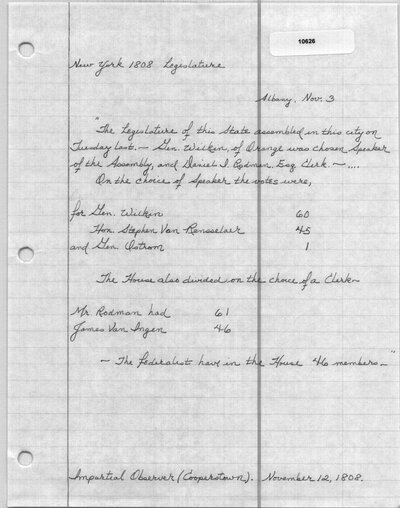 10626
New York 1808 Legislature
Albany, Nov. 3
"The Legislature of this State assembled in this city on
Tuesday last. — Gen. Wilkin, of Orange was chosen Speaker
of the Assembly, and Daniel I. Rodman, Esq Clerk. — ....
On the choice of Speaker the votes were,
for Gen. Wilkin 60
Hon. Stephen Van Rensselaer 45
and Gen. Ostrom 1
The House also divided on the choice of a Clerk—
Mr. Rodman had 61
James Van Ingen 46
— The federalist have in the House 46 members—"
Impartial Observer (Cooperstown). November 12, 1808.